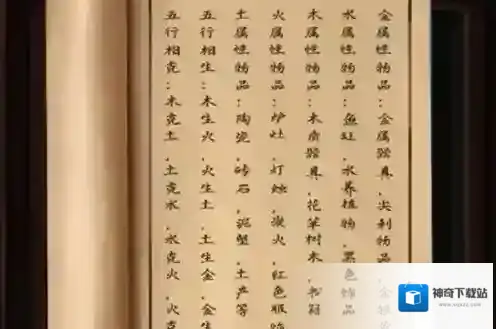 金属性物品：金属器具，尖利物品，金
水属性物品：鱼缸，水养植物，黑色饰品
木属性物品：木质器具，花草树木，书
火属性物品：炉灶，灯烛，火，红色服
土属性物品：陶瓷，砖石，泥塑，土产等
五行相生：木生火，火生土，土生金，金
五行相克：木克土，土克水，水克火，火
神奇下载站